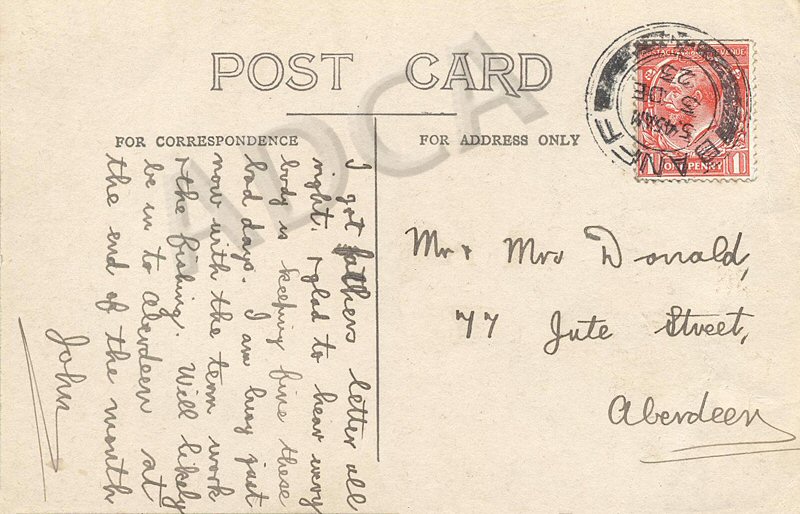 POST CARD
FOR CORRESPONDENCE
FOR ADDRESS ONLY
I got fathers letter all
right. & glad to hear every
body is keeping fine these
bad days. I am busy just
now with the term work
& the fishing. Will likely
be in to Aberdeen at
the end of the month
John
Mr & Mrs Donald,
77 Jute Street,
Aberdeen
BANFF
5 45 AM
3 DE
23
POSTAGE REVENUE
ONE PENNY
1
ADCA